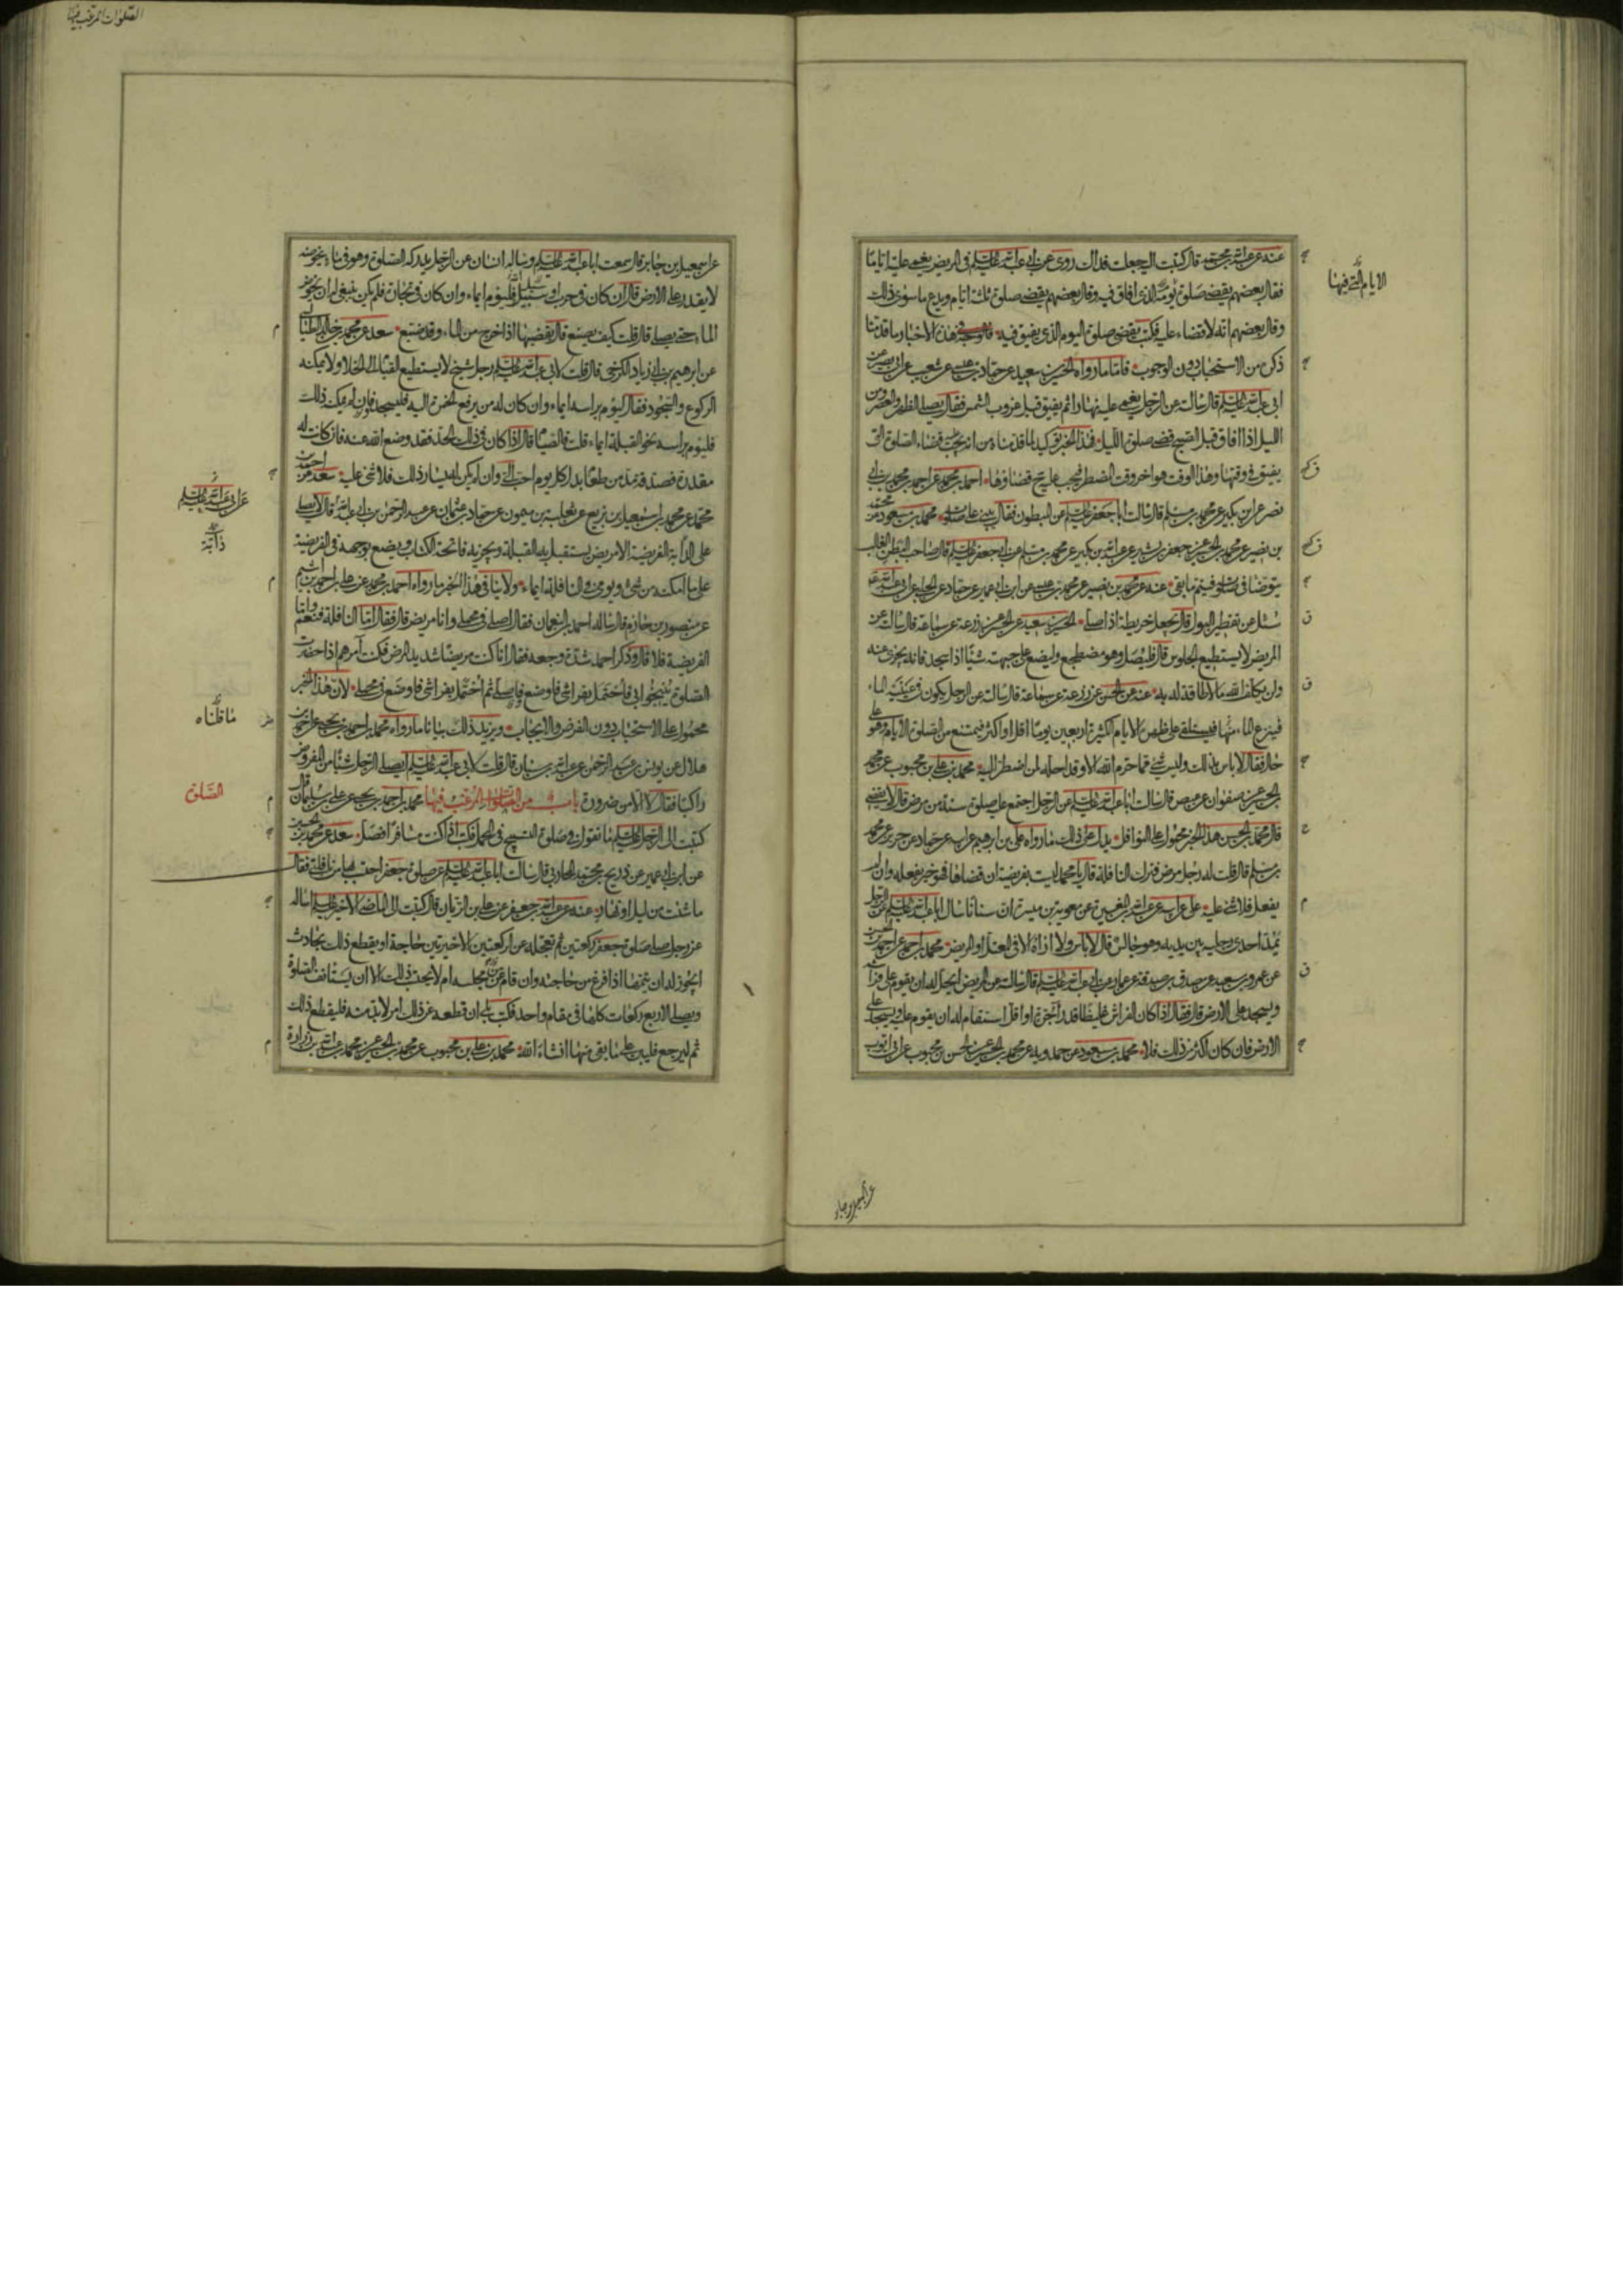 عنه عن عبد الله بن محمد قال كتبت اليه جعلت فداك روى عن ابى عبد الله عليه السلم فى المريض يغمى عليه اياما
فقال بعضهم يقضى صلوة يومه الذى افاق فيه وقال بعضهم يقضى صلوة ثلثة ايام ويدع ما سوى ذلك
وقال بعضهم انه لا قضاء عليه فكتب يقضى صلوة اليوم الذى يفيق فيه فالوجه فى هذه الاخبار ما قدمنا
ذكره من الاستحباب دون الوجوب فاما ما رواه الحسين بن سعيد عن حماد بن عيسى عن شعيب عن ابى بصير عن
ابى عبد الله عليه السلم قال سالته عن الرجل يغمى عليه نهارا ثم يفيق قبل غروب الشمس فقال يصلى الظهر والعصر ومن
الليل اذا افاق قبل الصبح قضى صلوة الليل فهذا الخبر يؤكد ما قدمناه من انه يجب عليه قضاء الصلوة التى
يفيق فى وقتها وهذا الوقت هو اخر وقت المضطر فيجب عليه ح قضاؤها احمد بن محمد عن احمد بن محمد بن ابى
نصر عن ابن بكير عن محمد بن مسلم قال سالت ابا جعفر عليه السلم عن المبطون فقال يبنى على صلوته محمد بن مسعود عن محمد
بن نصير عن محمد بن الحسين عن جعفر بن بشير عن عبد الله بن بكير عن محمد بن مسلم عن ابى جعفر عليه السلم قال صاحب البطن الغالب
يتوضا فى صلوته فيتم ما بقى عنه عن محمد بن نصير عن محمد بن عيسى عن ابن ابى عمير عن حماد عن الحلبى عن ابى عبد الله ع
سئل عن تقطير البول قال يجعل خريطة اذا صلى الحسين بن سعيد عن الحسن عن زرعة عن سماعة قال سالته عن
المريض لا يستطيع الجلوس قال فليصل وهو مضطجع وليضع على جبهته شيئا اذا سجد فانه يجزى عنه
ولن يكلف الله ما لا طاقة له به عنه عن الحسن عن زرعة عن سماعة قال سالته عن الرجل يكون فى عينيه الماء
فينزع الماء منها فيستلقى على ظهره الايام الكثيرة اربعين يوما اقل او اكثر فيمتنع من الصلوة الايام وهو على
حال فقال لا باس بذلك وليس شئ مما حرم الله الا وقد احله لمن اضطر اليه محمد بن على بن محبوب عن محمد
بن الحسين عن صفوان عن عيص قال سالت ابا عبد الله عليه السلم عن الرجل اجتمع عليه صلوة سنة من مرض قال لا يقضى
قال محمد بن الحسن هذا الخبر محمول على النوافل يدل على ذلك ما رواه على بن ابراهيم عن ابيه عن حماد عن حريز عن محمد
بن مسلم قال قلت له رجل مرض فترك النافلة قال يا محمد ليست بفريضة ان قضاها فهو خير يفعله وان لم
يفعل فلا شئ عليه على عن ابيه عن عبد الله بن المغيرة عن معوية بن ميسرة ان سنانا سال ابا عبد الله عليه السلم عن الرجل
يمد احدى رجليه بين يديه وهو جالس قال لا باس ولا اراه الا قال فى المعتل او المريض محمد بن احمد عن احمد بن الحسن
عن عمرو بن سعيد عن مصدق بن صدقة عن عمار عن ابى عبد الله عليه السلم قال سالته عن المريض ايحل له ان يقوم على فراشه
ويسجد على الارض قال فقال اذا كان الفراش غليظا قدر اجرة او اقل استقام له ان يقوم عليه ويسجد على
الارض فان كان اكثر من ذلك فلا محمد بن مسعود عن حمدويه عن محمد بن الحسين عن الحسن بن محبوب عن ابى ايوب
الايام التى فيها
عن اسمعيل بن جابر
الصلوات المرغب فيها
عن اسمعيل بن جابر قال سمعت ابا عبد الله عليه السلم وساله انسان عن الرجل يدركه الصلوة وهو فى ماء يخوضه
لا يقدر على الارض قال ان كان فى حرب او سبيل الله فليوم ايماء وان كان فى تجارة فلم يكن ينبغى له ان يخوض
الماء حتى يصلى قال قلت كيف يصنع قال يقضيها اذا خرج من الماء وقد ضيع سعد عن محمد بن خالد الطيالسى
عن ابرهيم بن ابى زياد الكرخى قال قلت لابى عبد الله عليه السلم رجل شيخ لا يستطيع القيام الى الخلا ولا يمكنه
الركوع والسجود فقال ليوم براسه ايماء وان كان له من يرفع الخمرة اليه فليسجد فان لم يمكنه ذلك
فليوم براسه نحو القبلة ايماء قلت فالصيام قال اذا كان فى ذلك الحد فقد وضع الله عنه فان كانت له
مقدرة فصدقة مد من طعام بدل كل يوم احب الى وان لم يكن له يسار ذلك فلا شئ عليه سعد عن احمد بن
محمد عن محمد بن اسمعيل بن بزيع عن ثعلبة بن ميمون عن حماد بن عثمان عن عبد الرحمن بن ابى عبد الله قال لا يصلى
على الدابة الفريضة الا مريض يستقبل به القبلة ويجزيه فاتحة الكتاب ويضع بوجهه فى الفريضة
على ما امكنه من شئ ويومى فى النافلة ايماء ولا ينافى هذا الخبر ما رواه احمد بن محمد عن على بن احمد بن اشيم
عن منصور بن حازم قال ساله احمد بن النعمان فقال اصلى فى محملى وانا مريض قال فقال اما النافلة فنعم واما
الفريضة فلا قال وذكر احمد شدة وجعه فقال انا كنت مريضا شديد المرض فكنت آمرهم اذا حضرت
الصلوة ينيخوا بى فاحتمل بفراشى فاوضع واصلى ثم احتمل بفراشى فاوضع فى محملى لان هذا الخبر
محمول على الاستحباب دون الفرض والايجاب ويزيد ذلك بيانا ما رواه محمد بن احمد بن يحيى عن احمد بن
هلال عن يونس بن عبد الرحمن عن عبد الله بن سنان قال قلت لابى عبد الله عليه السلم ايصلى الرجل شيئا من المفروض
راكبا فقال لا الا من ضرورة باب من الصلوات المرغب فيها محمد بن احمد بن يحيى عن على بن سليمان قال
كتبت الى الرجل عليه السلم ما تقول فى صلوة التسبيح فى المحمل فكتب اذا كنت مسافرا فصل سعد عن محمد بن الحسين
عن ابن ابى عمير عن ذريح بن محمد المحاربى قال سالت ابا عبد الله عليه السلم عن صلوة جعفر احتسب بها من نافلتى فقال
ما شئت من ليل او نهار عنه عن عبد الله بن جعفر عن على بن الريان قال كتبت الى الماضى الاخير عليه السلم اساله
عن رجل صلى صلوة جعفر ركعتين ثم تعجله عن الركعتين الاخيرتين حاجة او يقطع ذلك بحادث
ايجوز له ان يتمها اذا فرغ من حاجته وان قام عن مجلسه ام لا يحتسب ذلك الا ان يستانف الصلوة
ويصلى الاربع ركعات كلها فى مقام واحد فكتب بلى ان قطعه عن ذلك امر لا بد منه فليقطع ذلك
ثم ليرجع فليبن على ما بقى منها انشاء الله محمد بن على بن محبوب عن محمد بن الحسين عن محمد بن عبد الله بن زرارة
عن ابى عبد الله عليه السلم
دابة
ما قلناه
الصلوة